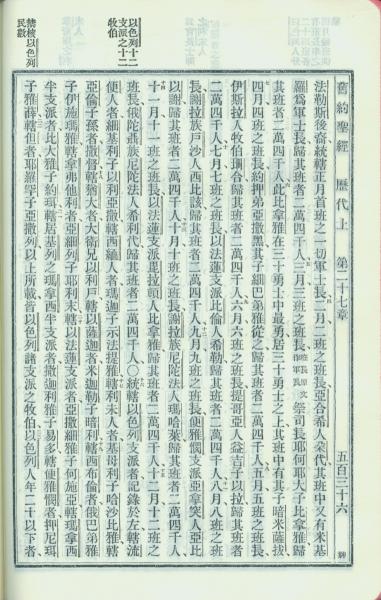 舊約聖經 歷代上 第二十七章 五百三十六
法勒斯後裔統轄正月首班之一切軍士長二月二班之班長亞合希人朶代其班中又有米基
羅爲軍士長歸其班者二萬四千人三月三班之班長班長原文作軍長祭司長耶何耶大子比拿雅歸
其班者二萬四千人此比拿雅在三十勇士中最勇居三十勇士之上其班中有其子暗米薩拔
四月四班之班長約押弟亞撒黑其子細巴第雅從之歸其班者二萬四千人五月五班之班長
伊斯拉人珊合歸其班者二萬四千人六月六班之班長提哥亞人益吉子以拉歸其班者
二萬四千人七月七班之班長以法蓮支派比倫人希勒歸其班者二萬四千人八月八班之班
長謝拉族戶沙人西比該歸其班者二萬四千人九月九班之班長便雅憫支派亞拿突人亞比
以謝歸其班者二萬四千人十月十班之班長謝拉族尼陀法人瑪哈萊歸其班者二萬四千人
十一月十一班之班長以法蓮支派毘拉頓人比拿雅歸其班者二萬四千人十二月十二班之
班長俄陀聶族尼陀法人希利代歸其班者二萬四千人〇統轄以色列支派者記錄於左轄流
便人者細基利子以利亞撒轄西緬人者瑪迦子示法提雅轄利未人者基母利子哈沙比雅轄
亞倫子孫者撒督轄猶大者大衛兄以利戶轄以薩迦者米迦勒子暗利轄西布倫者俄巴第雅
子伊施瑪雅轄拿弗他利者亞細列子耶利末轄以法蓮支派者亞撒細雅子何施亞轄瑪拿西
半支派者比大雅子約珥轄居基列之瑪拿西半支派者撒迦利雅子易多轄便雅憫者押尼珥
子雅薛轄但者耶羅罕子亞撒列以上所載皆以色列諸支派之牧伯以色列人年二十以下者
以色列十二
支派之十二
牧伯
禁核以色列
民數